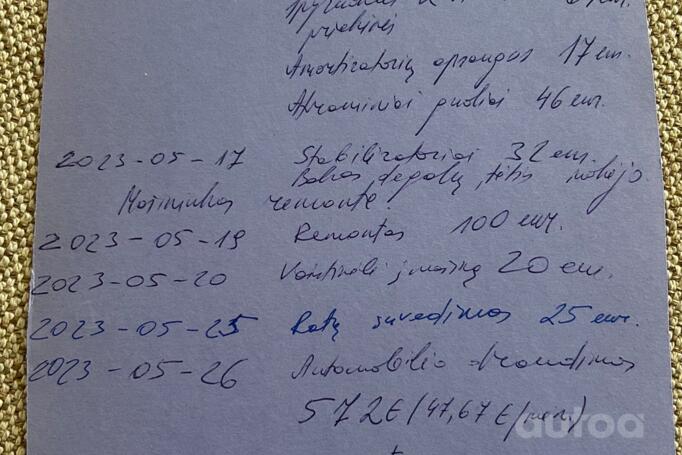 priekinės
Amortizatorių apsaugos 17 eur.
Atraminiai guoliai 46 eur.
2023-05-17 Stabilizatoriai 32 eur.
Bakas degalų, tėtis mokėjo.
Mašininkas remonte
2023-05-19 Remontas 100 eur.
2023-05-20 į mašiną 20 eur.
2023-05-25 Ratų suvedimas 25 eur.
2023-05-26 Automobilio draudimas
572€ (47,67€/mėn.)
autoa